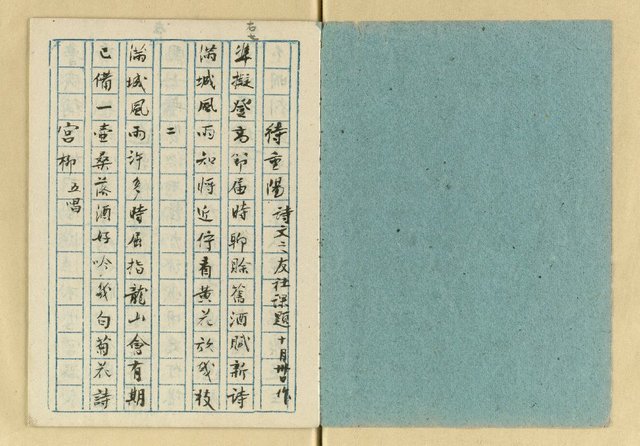 待重陽 詩文之友社課題 十月卅日作
準擬登高節届時聊賒舊酒賦新詩
滿城風雨知將近佇看黃花放幾枝
二
滿城風雨許多時屈指龍山會有期
已備一壺桑落酒好吟幾句菊花詩
宮柳 五唱